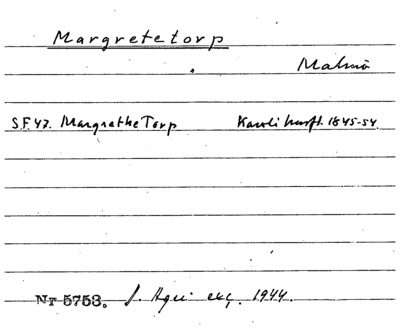 Margretetorp
Malmö
S.F. 47. Margrethe Torp Karoli husft. 1845-54.
Nr 5753. J. Agri exc. 1944.